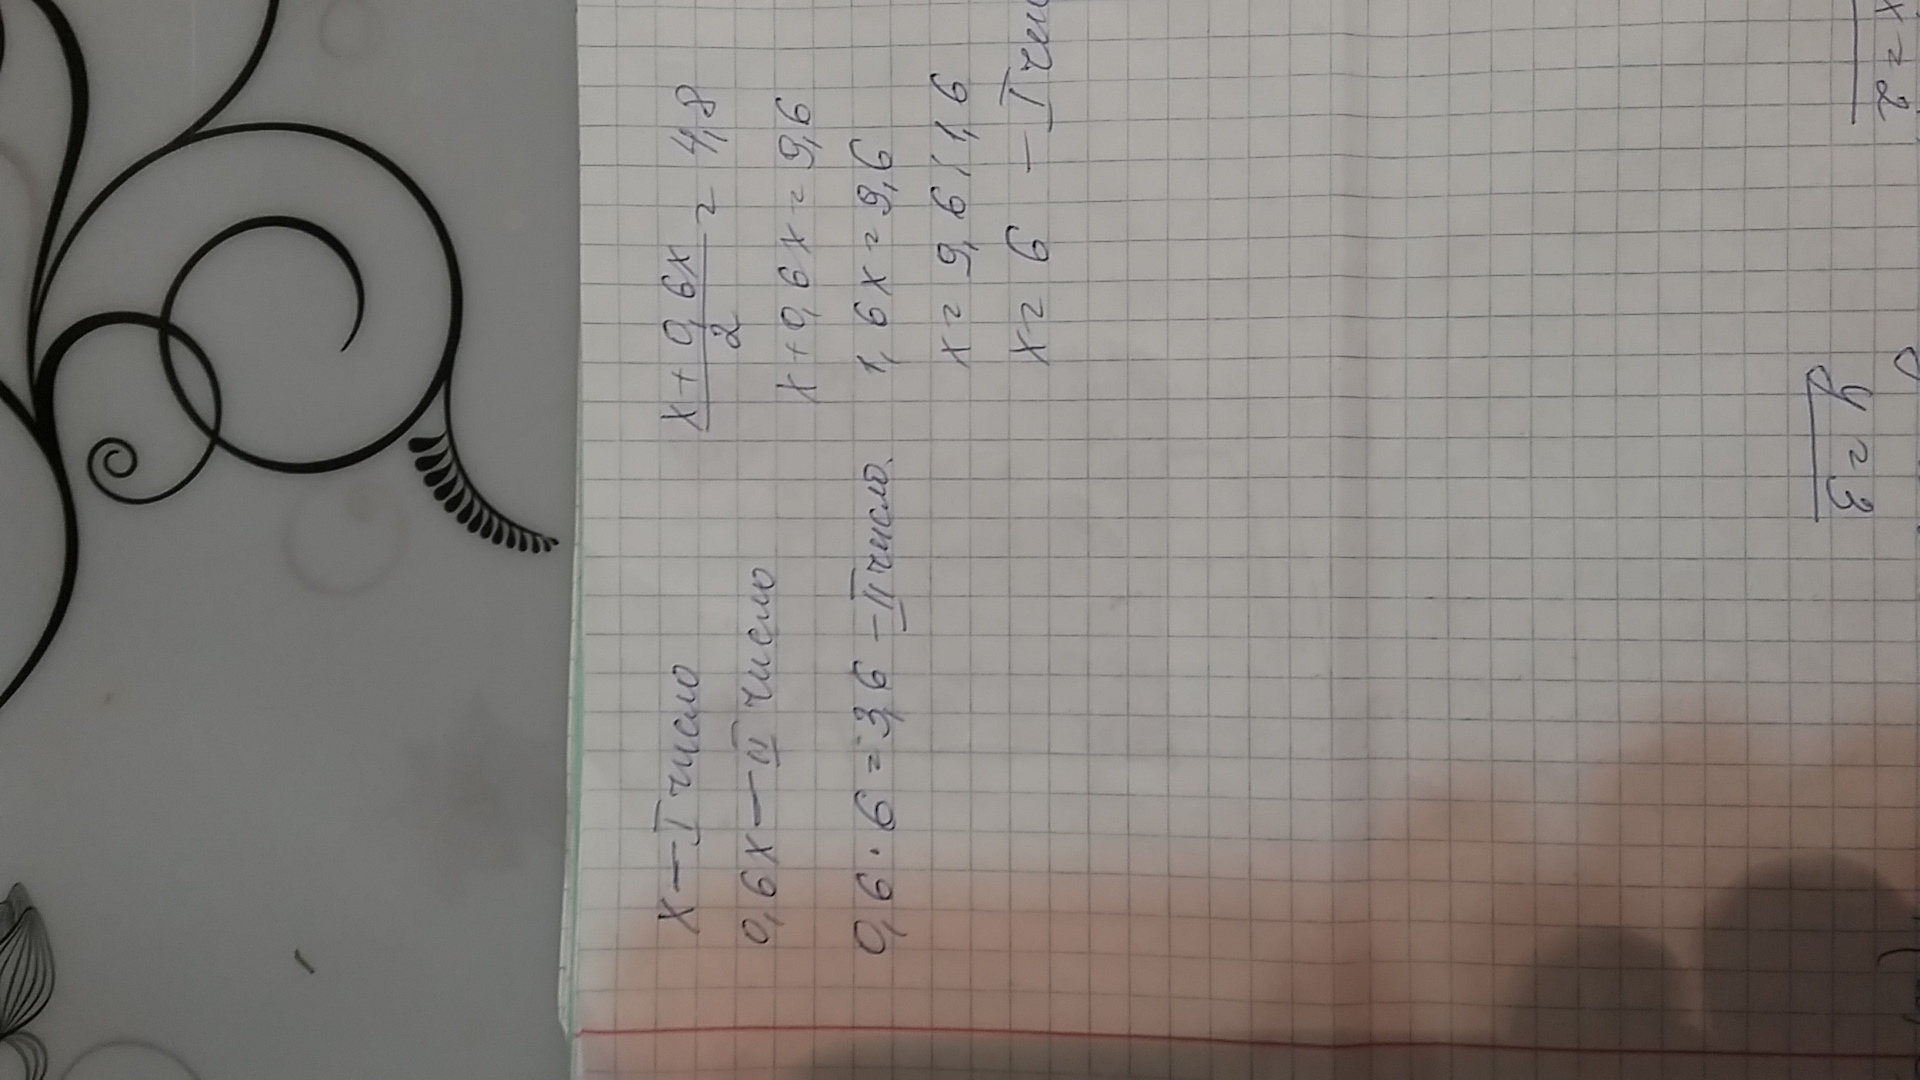 x — I число
0,6x — II число
0,6 · 6 = 3,6 – II число.
x + 0,6x / 2 = 4,8
x + 0,6x = 9,6
1,6x = 9,6
x = 9,6 / 1,6
x = 6 – I
x = 2
y = 3